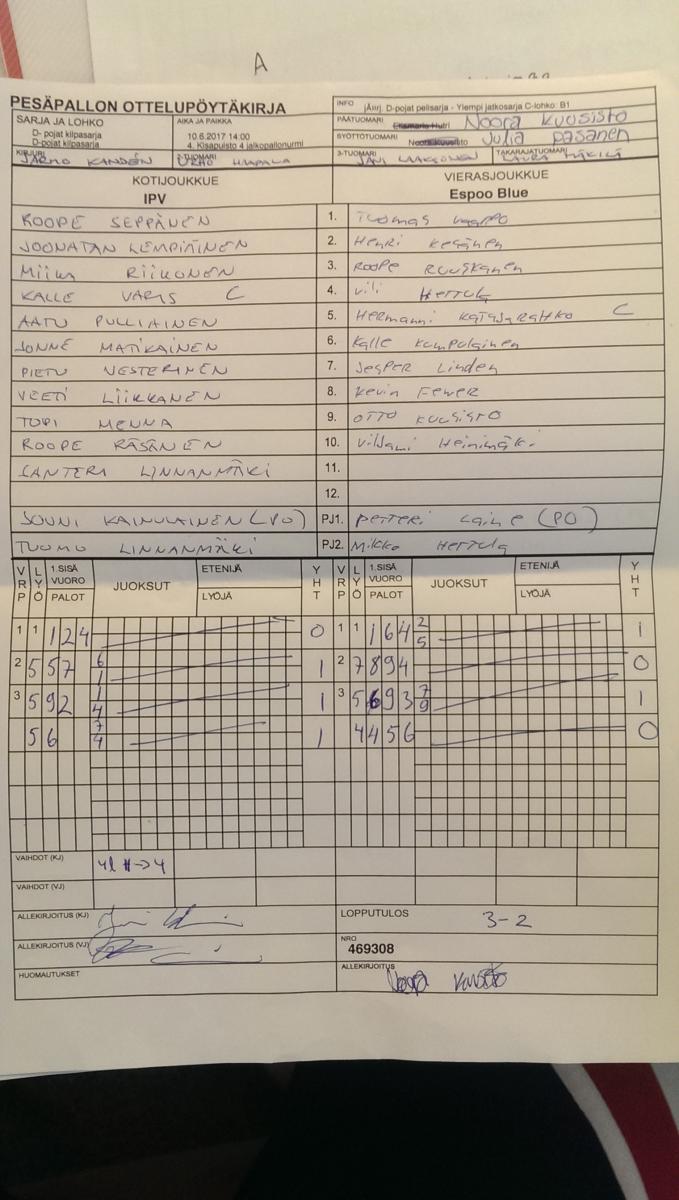 A
PESÄPALLON OTTELUPÖYTÄKIRJA
INFO jÄnrj. D-pojat pelisarja - Ylempi jatkosarja C-lohko: B1
SARJA JA LOHKO
D- pojat kilpasarja
D-pojat kilpasarja
AIKA JA PAIKKA
10.6.2017 14:00
4. Kisapuisto 4 jalkopallonurmi
PÄÄTUOMARI Noora Kuusisto
SYÖTTÖTUOMARI Julia Pasanen
KIRJURI JARMO KANDÉN
2-TUOMARI URHO HAAPALA
3-TUOMARI JANI LAAKSONEN
TAKARAJATUOMARI LAURA MÄKILÄ
KOTIJOUKKUE
IPV
VIERASJOUKKUE
Espoo Blue
ROOPE SEPPÄNEN 1. Tuomas
JOONATAN LEMPIÄINEN 2. Henri Kesänen
MIIKA RIIKONEN 3. Roope Ruuskanen
KALLE VARIS C 4. Vili Herttula
AATU PULLIAINEN 5. Hermanni Katajarahko C
JONNE MATIKAINEN 6. Kalle Kumpulainen
PIETU VESTERINEN 7. Jesper Linden
VEETI LIIKKANEN 8. Kevin Fewer
TOPI MENNA 9. OTTO KUUSISTO
ROOPE RÄSÄNEN 10. Viljami Heinimäki
SANTERI LINNANMÄKI 11.
12.
JOUNI KAINULAINEN (PO) PJ1. Petteri Laine (PO)
TUOMO LINNANMÄKI PJ2. Mikko Herttula
VRP LYÖ 1.SISÄ VUORO PALOT JUOKSUT ETENIJÄ LYÖJÄ YHT VRP LYÖ 1.SISÄ VUORO PALOT JUOKSUT ETENIJÄ LYÖJÄ YHT
1 1 124 0 1 1 164 2 5 1
2 5 57 6 1 1 2 7 894 0
3 5 92 1 4 1 3 5 693 7 9 1
5 6 7 4 1 4 456 0
VAIHDOT (KJ) 4→4
VAIHDOT (VJ)
ALLEKIRJOITUS (KJ) LOPPUTULOS 3-2
ALLEKIRJOITUS (VJ) NRO 469308
HUOMAUTUKSET ALLEKIRJOITUS Noora Kuusisto